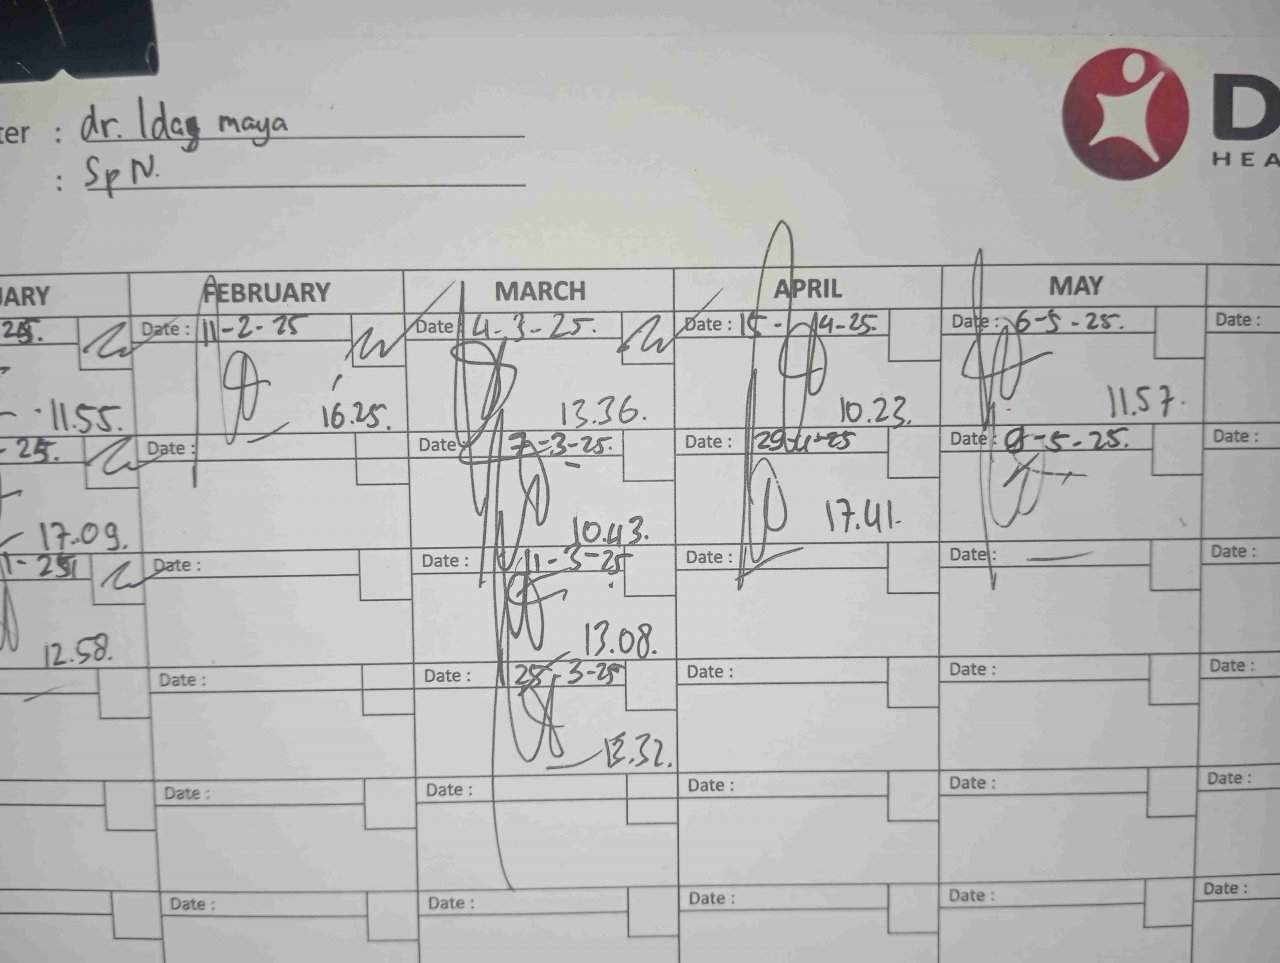 ter : dr. Iday maya
: Sp N.
D
HEA
UARY FEBRUARY MARCH APRIL MAY
25. Date : 11-2-25 Date 4-3-25. Date : 15-4-25. Date : 6-5-25. Date :
11.55. 16.25. 13.36. 10.23. 11.57.
-25. Date : Date 7-3-25. Date : 29-4-25 Date : 8-5-25. Date :
17.09. 10.43. 17.41.
1-25 Date : Date : 11-3-25 Date : Date : Date :
12.58. 13.08.
Date : Date : 25-3-25 Date : Date : Date :
12.32.
Date : Date : Date : Date : Date :
Date : Date : Date : Date : Date :